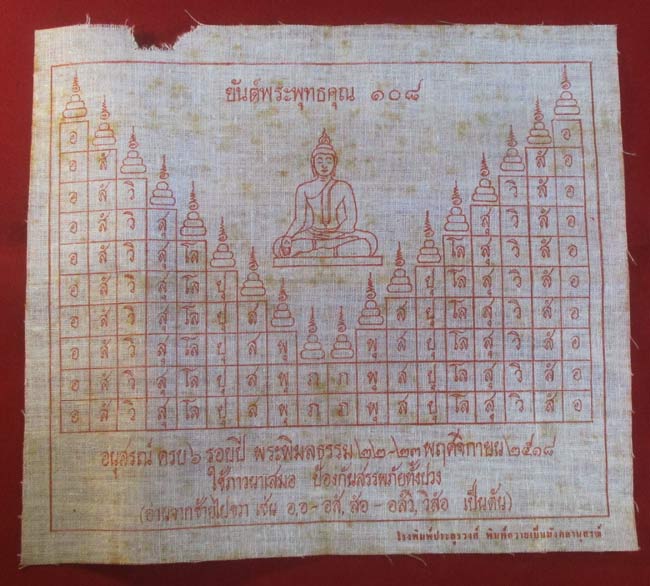 ยันต์พระพุทธคุณ ๑๐๘
อ อ
อ สั สั อ
อ สั วิ วิ สั อ
อ สั วิ สุ สุ วิ สั อ
อ สั วิ สุ โล โล สุ วิ สั อ
อ สั วิ สุ โล ปุ ปุ โล สุ วิ สั อ
อ สั วิ สุ โล ปุ ส ส ปุ โล สุ วิ สั อ
อ สั วิ สุ โล ปุ ส พุ พุ ส ปุ โล สุ วิ สั อ
อ สั วิ สุ โล ปุ ส พุ ภ ภ พุ ส ปุ โล สุ วิ สั อ
อ สั วิ สุ โล ปุ ส พุ ภ ภ พุ ส ปุ โล สุ วิ สั อ
อนุสรณ์ ครบ ๖ รอบปี พระพิมลธรรม ๒๒-๒๓ พฤศจิกายน ๒๕๑๘
ใช้ภาวนาเสมอ ป้องกันสรรพภัยทั้งปวง
(อ่านจากซ้ายไปขวา เช่น อ,อ - อสั, สัอ - อสัวิ, วิสัอ เป็นต้น)
โรงพิมพ์ประยูรวงศ์ พิมพ์ถวายเป็นมังคลานุสรณ์